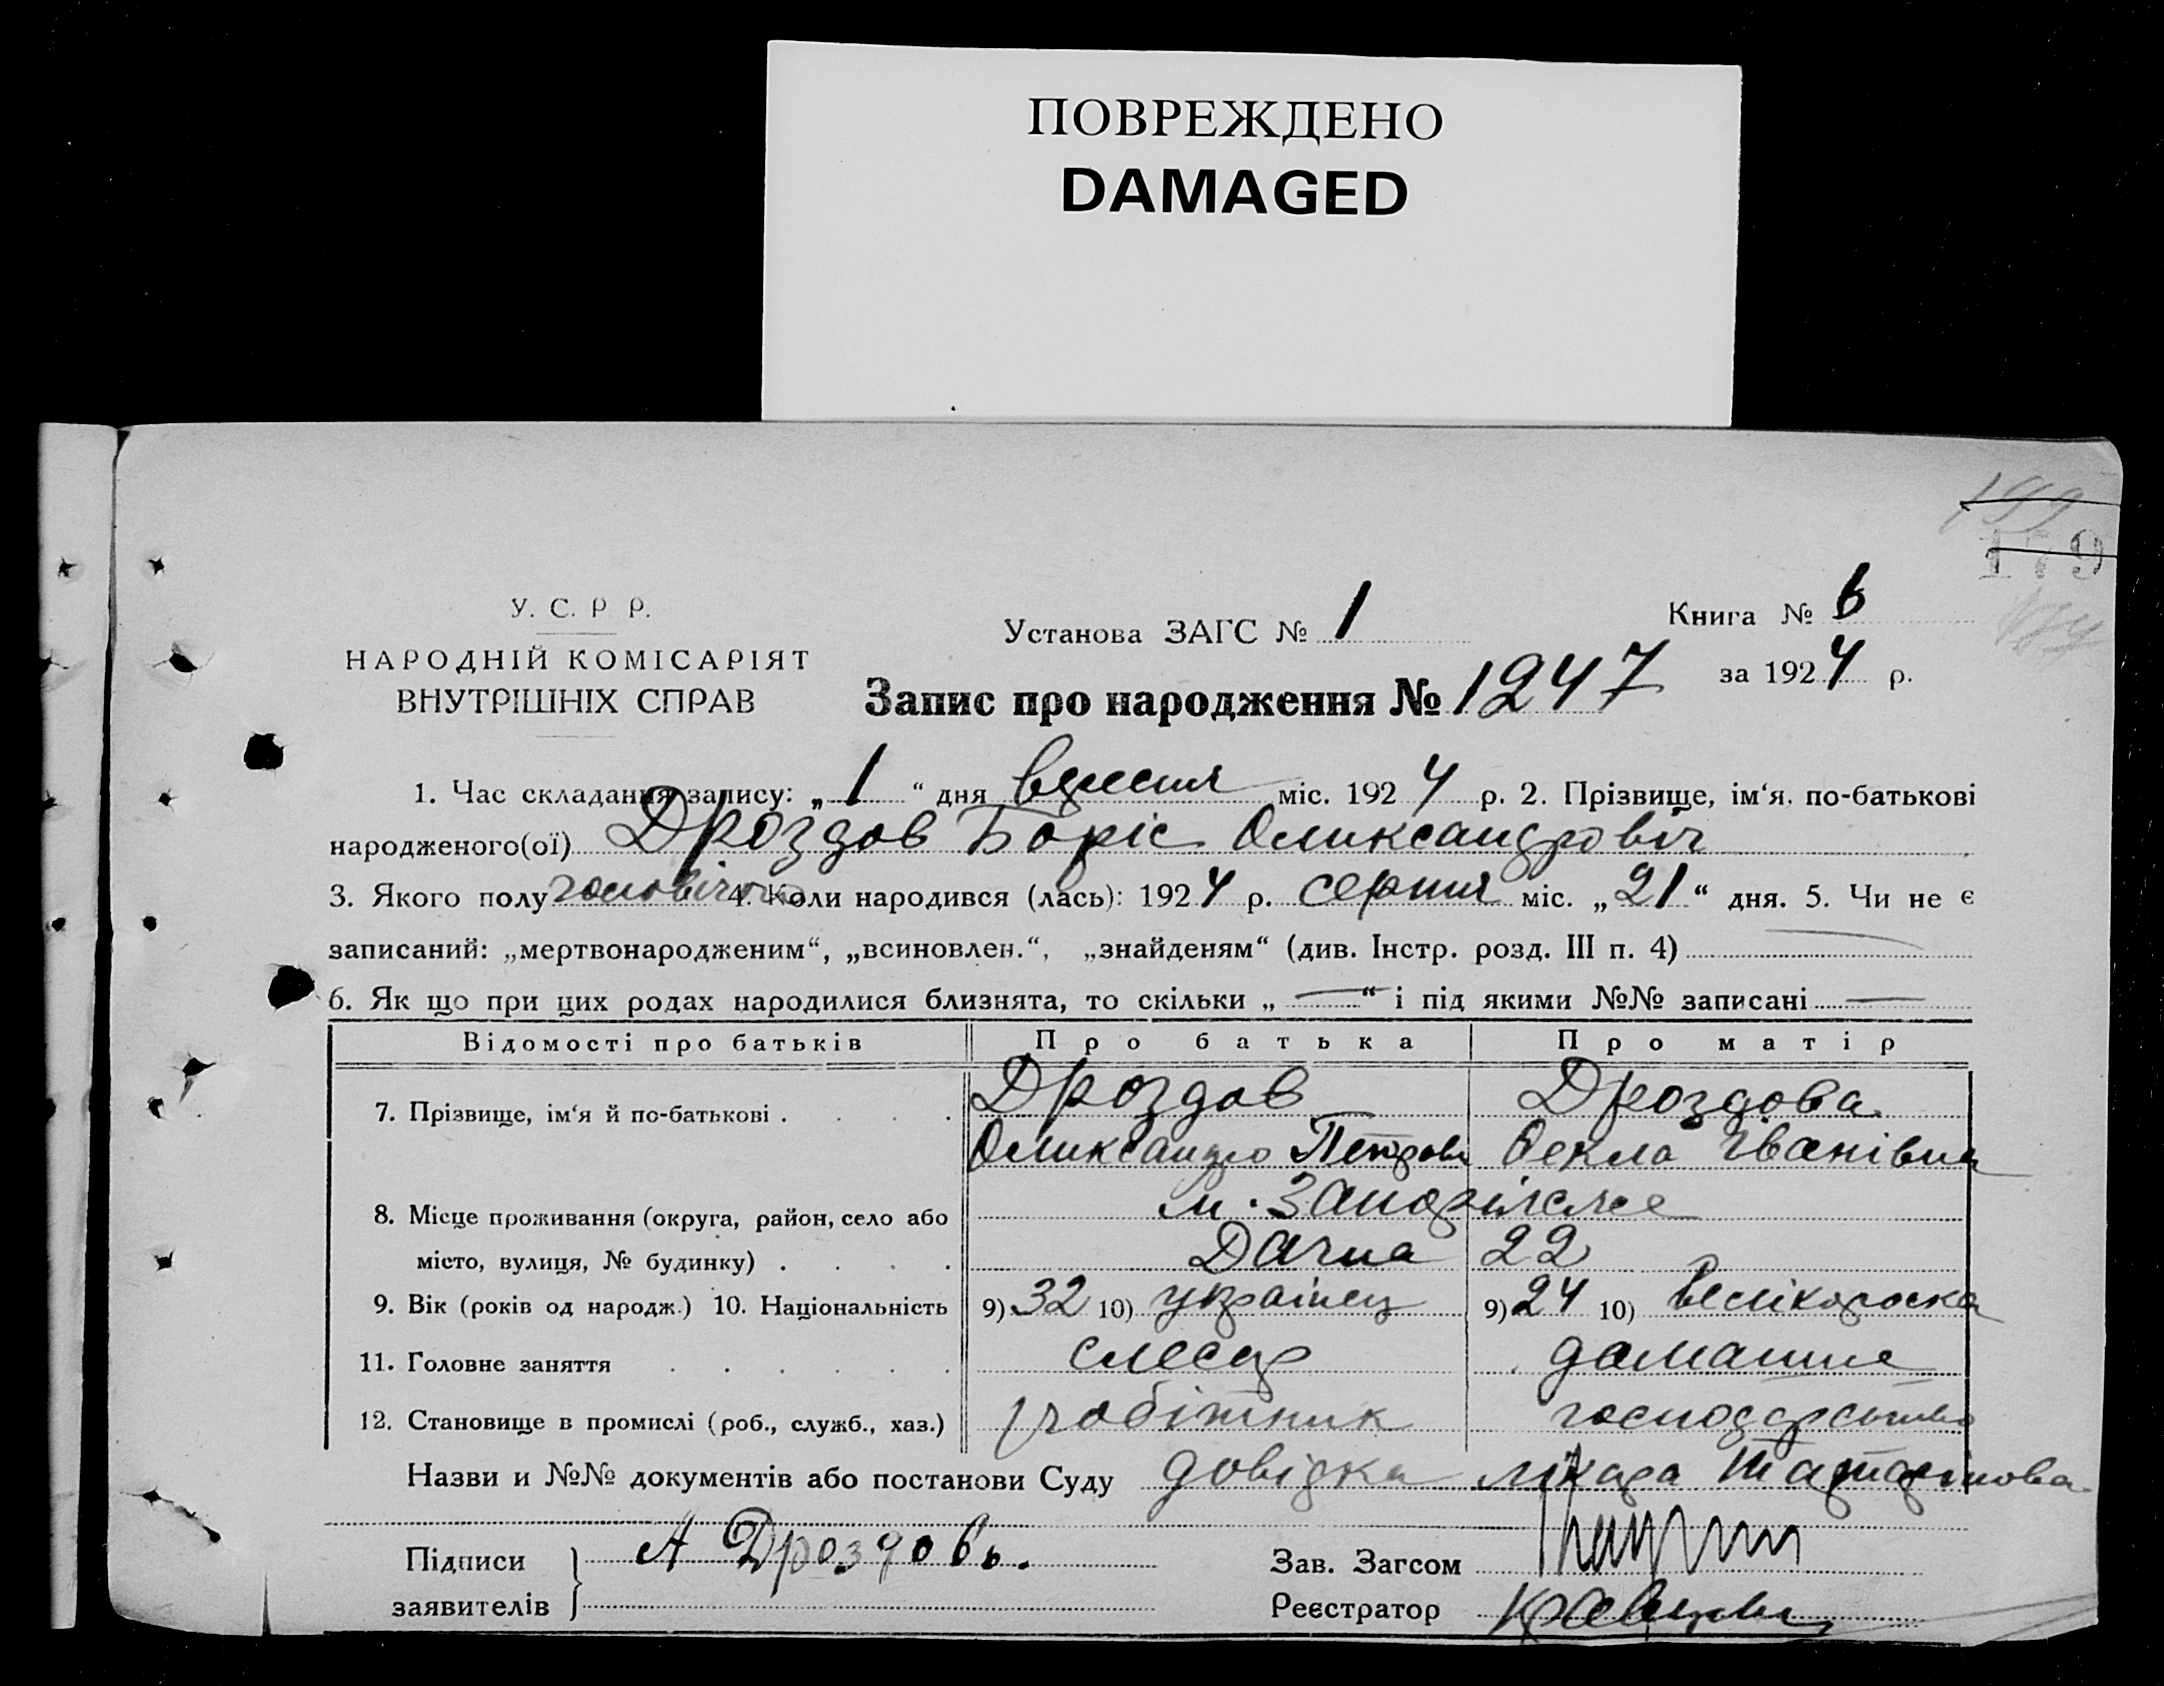 ПОВРЕЖДЕНО
DAMAGED
179
У. С. Р Р.
НАРОДНІЙ КОМІСАРІЯТ
ВНУТРІШНІХ СПРАВ
Установа ЗАГС № 1
Книга № 6
за 1924 р.
Запис про народження № 1247
1. Час складання запису: „1“ дня вересня міс. 1924 р. 2. Прізвище, ім‘я, по-батькові
народженого(ої) Дроздов Боріс Олександровіч
3. Якого полу чоловічого 4. Коли народився (лась): 1924 р. серпня міс. „21“ дня. 5. Чи не є
записаний: „мертвонародженим“, „всиновлен.“, „знайденям“ (див. Інстр. розд. III п. 4) —
6. Як що при цих родах народилися близнята, то скільки „—“ і під якими №№ записані —
Відомості про батьків Про батька Про матір
7. Прізвище, ім‘я й по-батькові . . . . Дроздов Дроздова
Олександро Петров Фекла Іванівна
8. Місце проживання (округа, район, село або м. Запоріжже
місто, вулиця, № будинку) . . . . Дачна 22
9. Вік (років од народж.) 10. Національність 9) 32 10) українец 9) 24 10) велікороска
11. Головне заняття . . . . . . слесар домашнє
12. Становище в промислі (роб., служб., хаз.) робітник господарство
Назви и №№ документів або постанови Суду довідка лікара Татарінова
Підписи А Дроздовъ.
заявителів
Зав. Загсом
Реєстратор